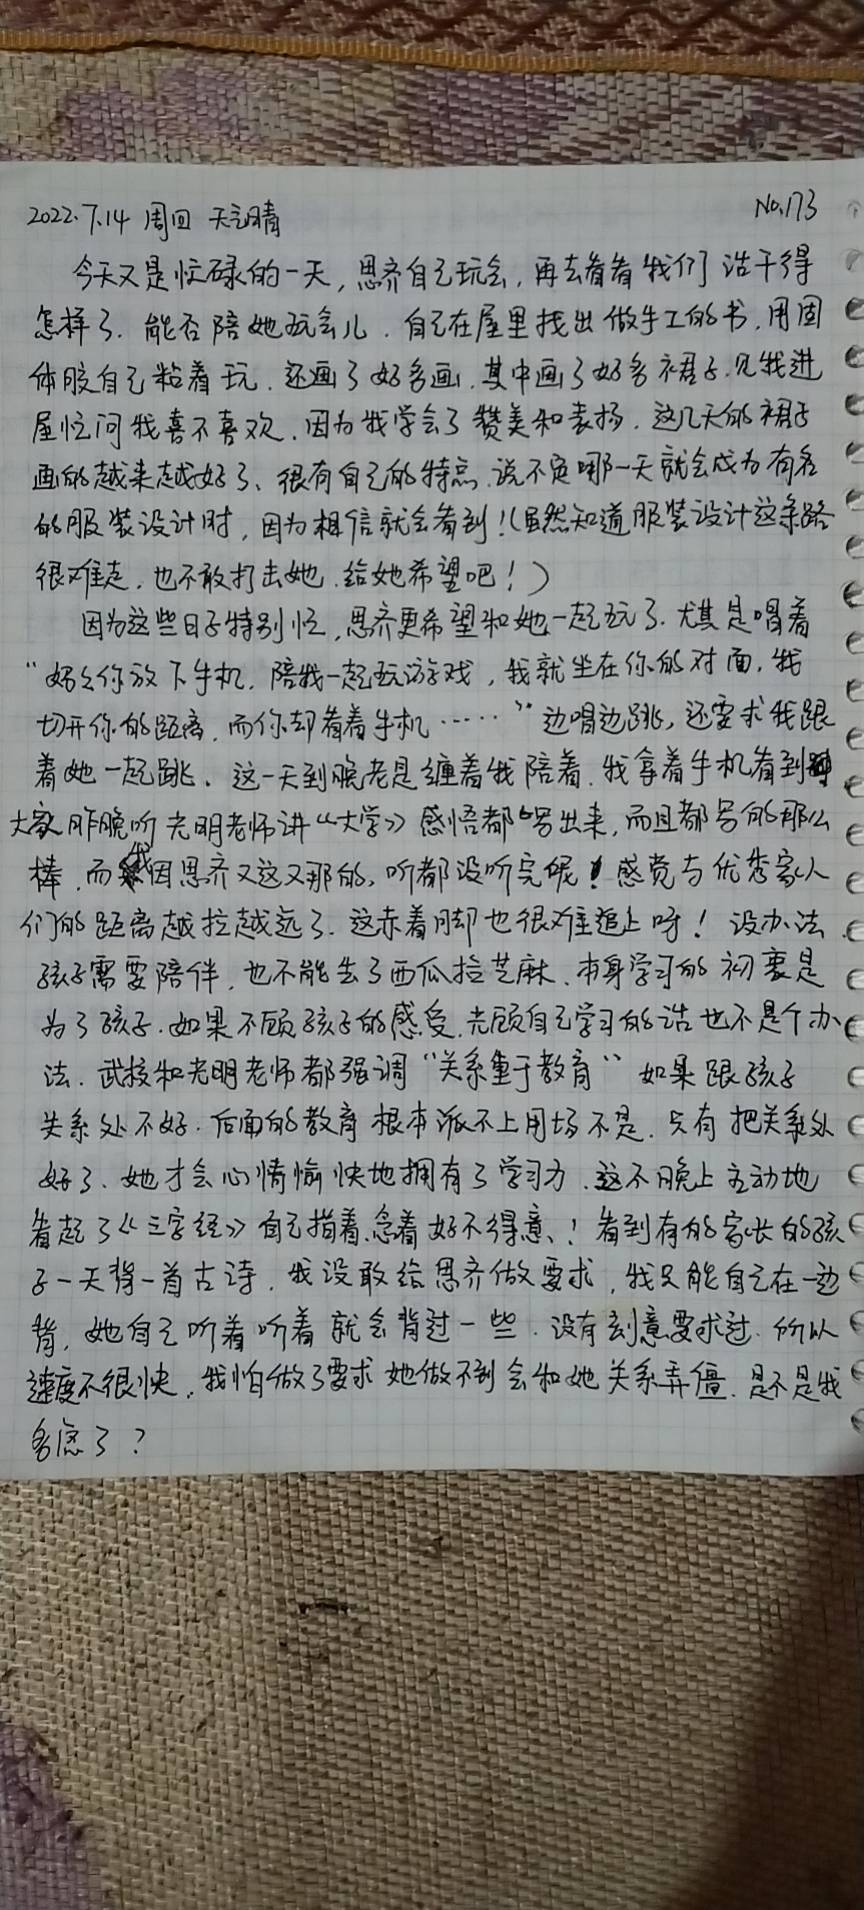 2022.7.14 周四 天气晴 No.173
今天又是忙碌的一天,思齐自己玩会,再去看看我们活干得
怎样了.能否陪她玩会儿.自己在屋里找出做手工的书,用固
体胶自己粘着玩.还画了好多画,其中画了好多裙子.见我进
屋忙问我喜不喜欢.因为我学会了赞美和表扬.这几天的裙子
画的越来越好了、很有自己的特点.说不定哪一天就会成为有名
的服装设计时,因为相信就会看到!(虽然知道服装设计这条路
很难走,也不敢打击她.给她希望吧!)
因为这些日子特别忙,思齐更希望和她一起玩了.尤其是唱着
“妈么你放下手机,陪我一起玩游戏,我就坐在你的对面,我
切开你的距离,而你却看着手机……”边唱边跳,还要求我跟
着她一起跳、这一天到晚老是缠着我陪着.我拿着手机看到
大家昨晚听光明老师讲《大学》感悟都写出来,而且都写的那么
棒.而我因思齐又这又那的,听都没听完呢!感觉与优秀家人
们的距离越拉越远了.这赤着脚也很难追上呀!没办法.
孩子需要陪伴,也不能丢了西瓜捡芝麻.本身学习的初衷是
为了孩子.如果不顾孩子的感受,光顾自己学习的话也不是个办
法.武校和光明老师都强调“关系重于教育”如果跟孩子
关系处不好.后面的教育根本派不上用场不是.只有把关系处
好了、她才会心情愉快地拥有了学习力.这不晚上主动地
看起了《三字经》自己指着念着好不得意!看到有的家长的孩
子一天背一首古诗.我没敢给思齐做要求,我只能自己在一边
背,她自己听着听着就会背过一些.没有刻意要求过.所以
速度不很快.我怕做了要求她做不到会和她关系弄僵.是不是我
多虑了?